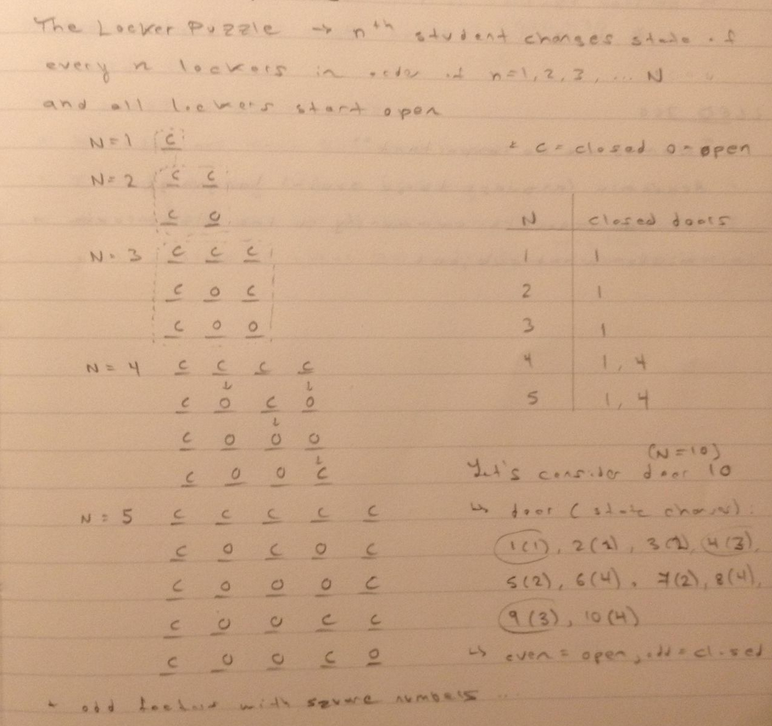 The Locker Puzzle → nth student changes state of
every n lockers in order of n=1, 2, 3, ... N
and all lockers start open
N=1 C
* C = closed O = open
N=2 C C
C O
N closed doors
N=3 C C C
1 1
C O C
2 1
C O O
3 1
N=4 C C C C
4 1, 4
C O C O
5 1, 4
C O O O
(N=10)
C O O C
Let's consider door 10
N=5 C C C C C
↳ door (state change):
C O C O C
1(1), 2(2), 3(2), 4(3),
C O O O C
5(2), 6(4), 7(2), 8(4),
C O O C C
9(3), 10(4)
C O O C O
↳ even = open, odd = closed
* odd factors with square numbers ...